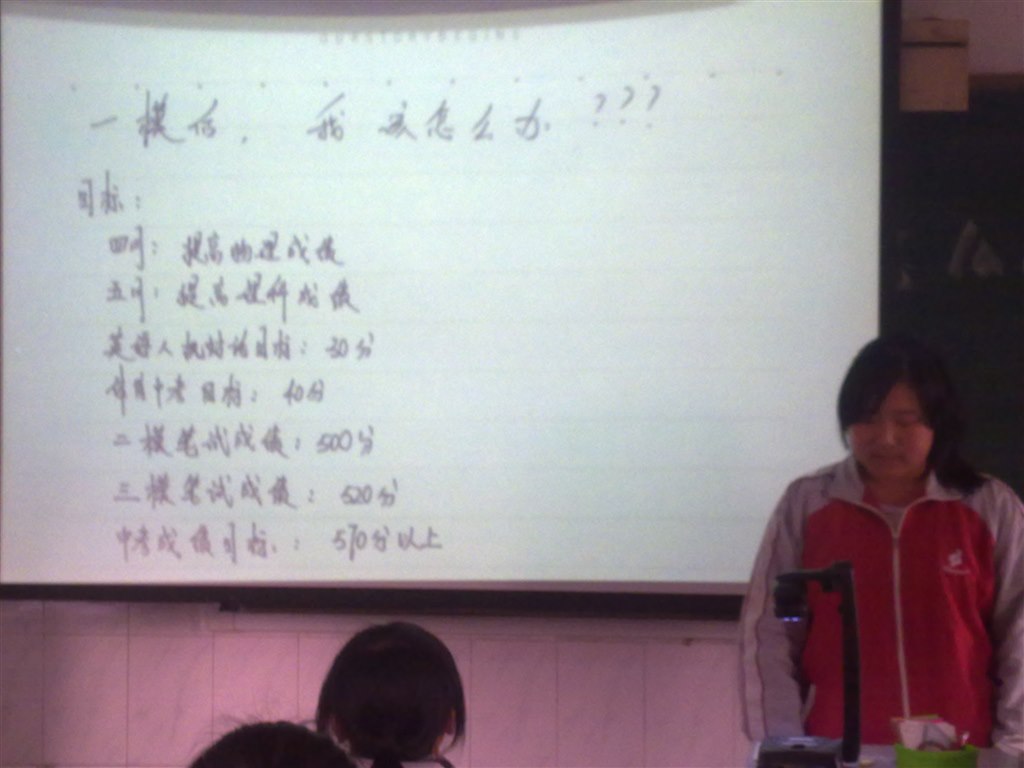 一模后，我该怎么办???
目标：
四月：提高物理成绩
五月：提高理科成绩
英语人机对话目标：30分
体育中考目标：40分
二模笔试成绩：500分
三模笔试成绩：520分
中考成绩目标：570分以上